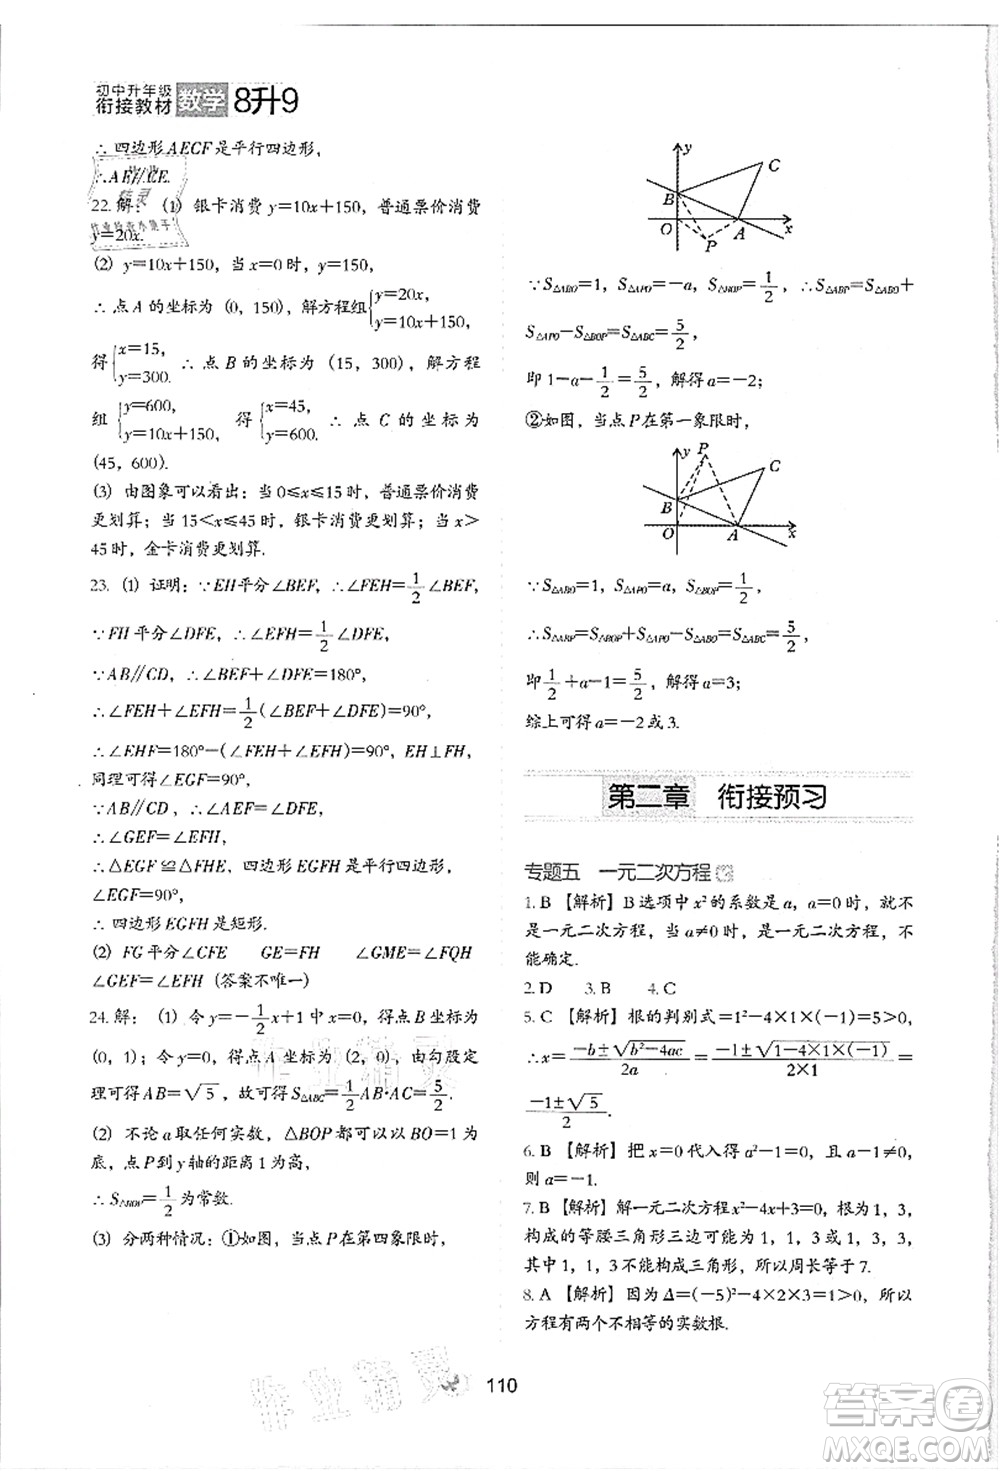 初中升年级
衔接教材 数学 8升9
∴四边形AECF是平行四边形，
∴AE∥CE.
22.解：（1）银卡消费y=10x+150，普通票价消费
y=20x.
（2）y=10x+150，当x=0时，y=150，
∴点A的坐标为（0，150），解方程组{y=20x,
y=10x+150,
得{x=15,
y=300. ∴点B的坐标为（15，300），解方程
组{y=600,
y=10x+150, 得{x=45,
y=600. ∴点C的坐标为
（45，600）.
（3）由图象可以看出：当0≤x≤15时，普通票价消费
更划算；当15<x≤45时，银卡消费更划算；当x>
45时，金卡消费更划算.
23.（1）证明：∵EH平分∠BEF，∴∠FEH=1/2∠BEF，
∵FH平分∠DFE，∴∠EFH=1/2∠DFE，
∵AB∥CD，∴∠BEF+∠DFE=180°，
∴∠FEH+∠EFH=1/2（∠BEF+∠DFE）=90°，
∴∠EHF=180°-（∠FEH+∠EFH）=90°，EH⊥FH，
同理可得∠EGF=90°，
∵AB∥CD，∴∠AEF=∠DFE，
∴∠GEF=∠EFH，
∴△EGF≌△FHE，四边形EGFH是平行四边形，
∠EGF=90°，
∴四边形EGFH是矩形.
（2）FG平分∠CFE GE=FH ∠GME=∠FQH
∠GEF=∠EFH（答案不唯一）
24.解：（1）令y=-1/2x+1中x=0，得点B坐标为
（0，1）；令y=0，得点A坐标为（2，0），由勾股定
理可得AB=√5，故可得S△ABC=1/2AB·AC=5/2.
（2）不论a取任何实数，△BOP都可以以BO=1为
底，点P到y轴的距离1为高，
∴S△BOP=1/2为常数.
（3）分两种情况：①如图，当点P在第四象限时，
y
C
B
O
A
x
P
∵S△ABO=1，S△APO=-a，S△BOP=1/2，∴S△ABP=S△ABO+
S△APO-S△BOP=S△ABC=5/2，
即1-a-1/2=5/2，解得a=-2；
②如图，当点P在第一象限时，
y
P
C
B
O
A
x
∵S△ABO=1，S△APO=a，S△BOP=1/2，
∴S△ABP=S△BOP+S△APO-S△ABO=S△ABC=5/2，
即1/2+a-1=5/2，解得a=3；
综上可得a=-2或3.
第二章 衔接预习
专题五 一元二次方程
1.B【解析】B选项中x²的系数是a，a=0时，就不
是一元二次方程，当a≠0时，是一元二次方程，不
能确定.
2.D 3.B 4.C
5.C【解析】根的判别式=1²-4×1×（-1）=5>0，
∴x=(-b±√(b²-4ac))/2a=(-1±√(1-4×1×(-1)))/(2×1)=
(-1±√5)/2.
6.B【解析】把x=0代入得a²-1=0，且a-1≠0，
则a=-1.
7.B【解析】解一元二次方程x²-4x+3=0，根为1，3，
构成的等腰三角形三边可能为1，1，3或1，3，3，其
中1，1，3不能构成三角形，所以周长等于7.
8.A【解析】因为Δ=（-5）²-4×2×3=1>0，所以
方程有两个不相等的实数根.
110
作业精灵
答案圈
MXQE.COM